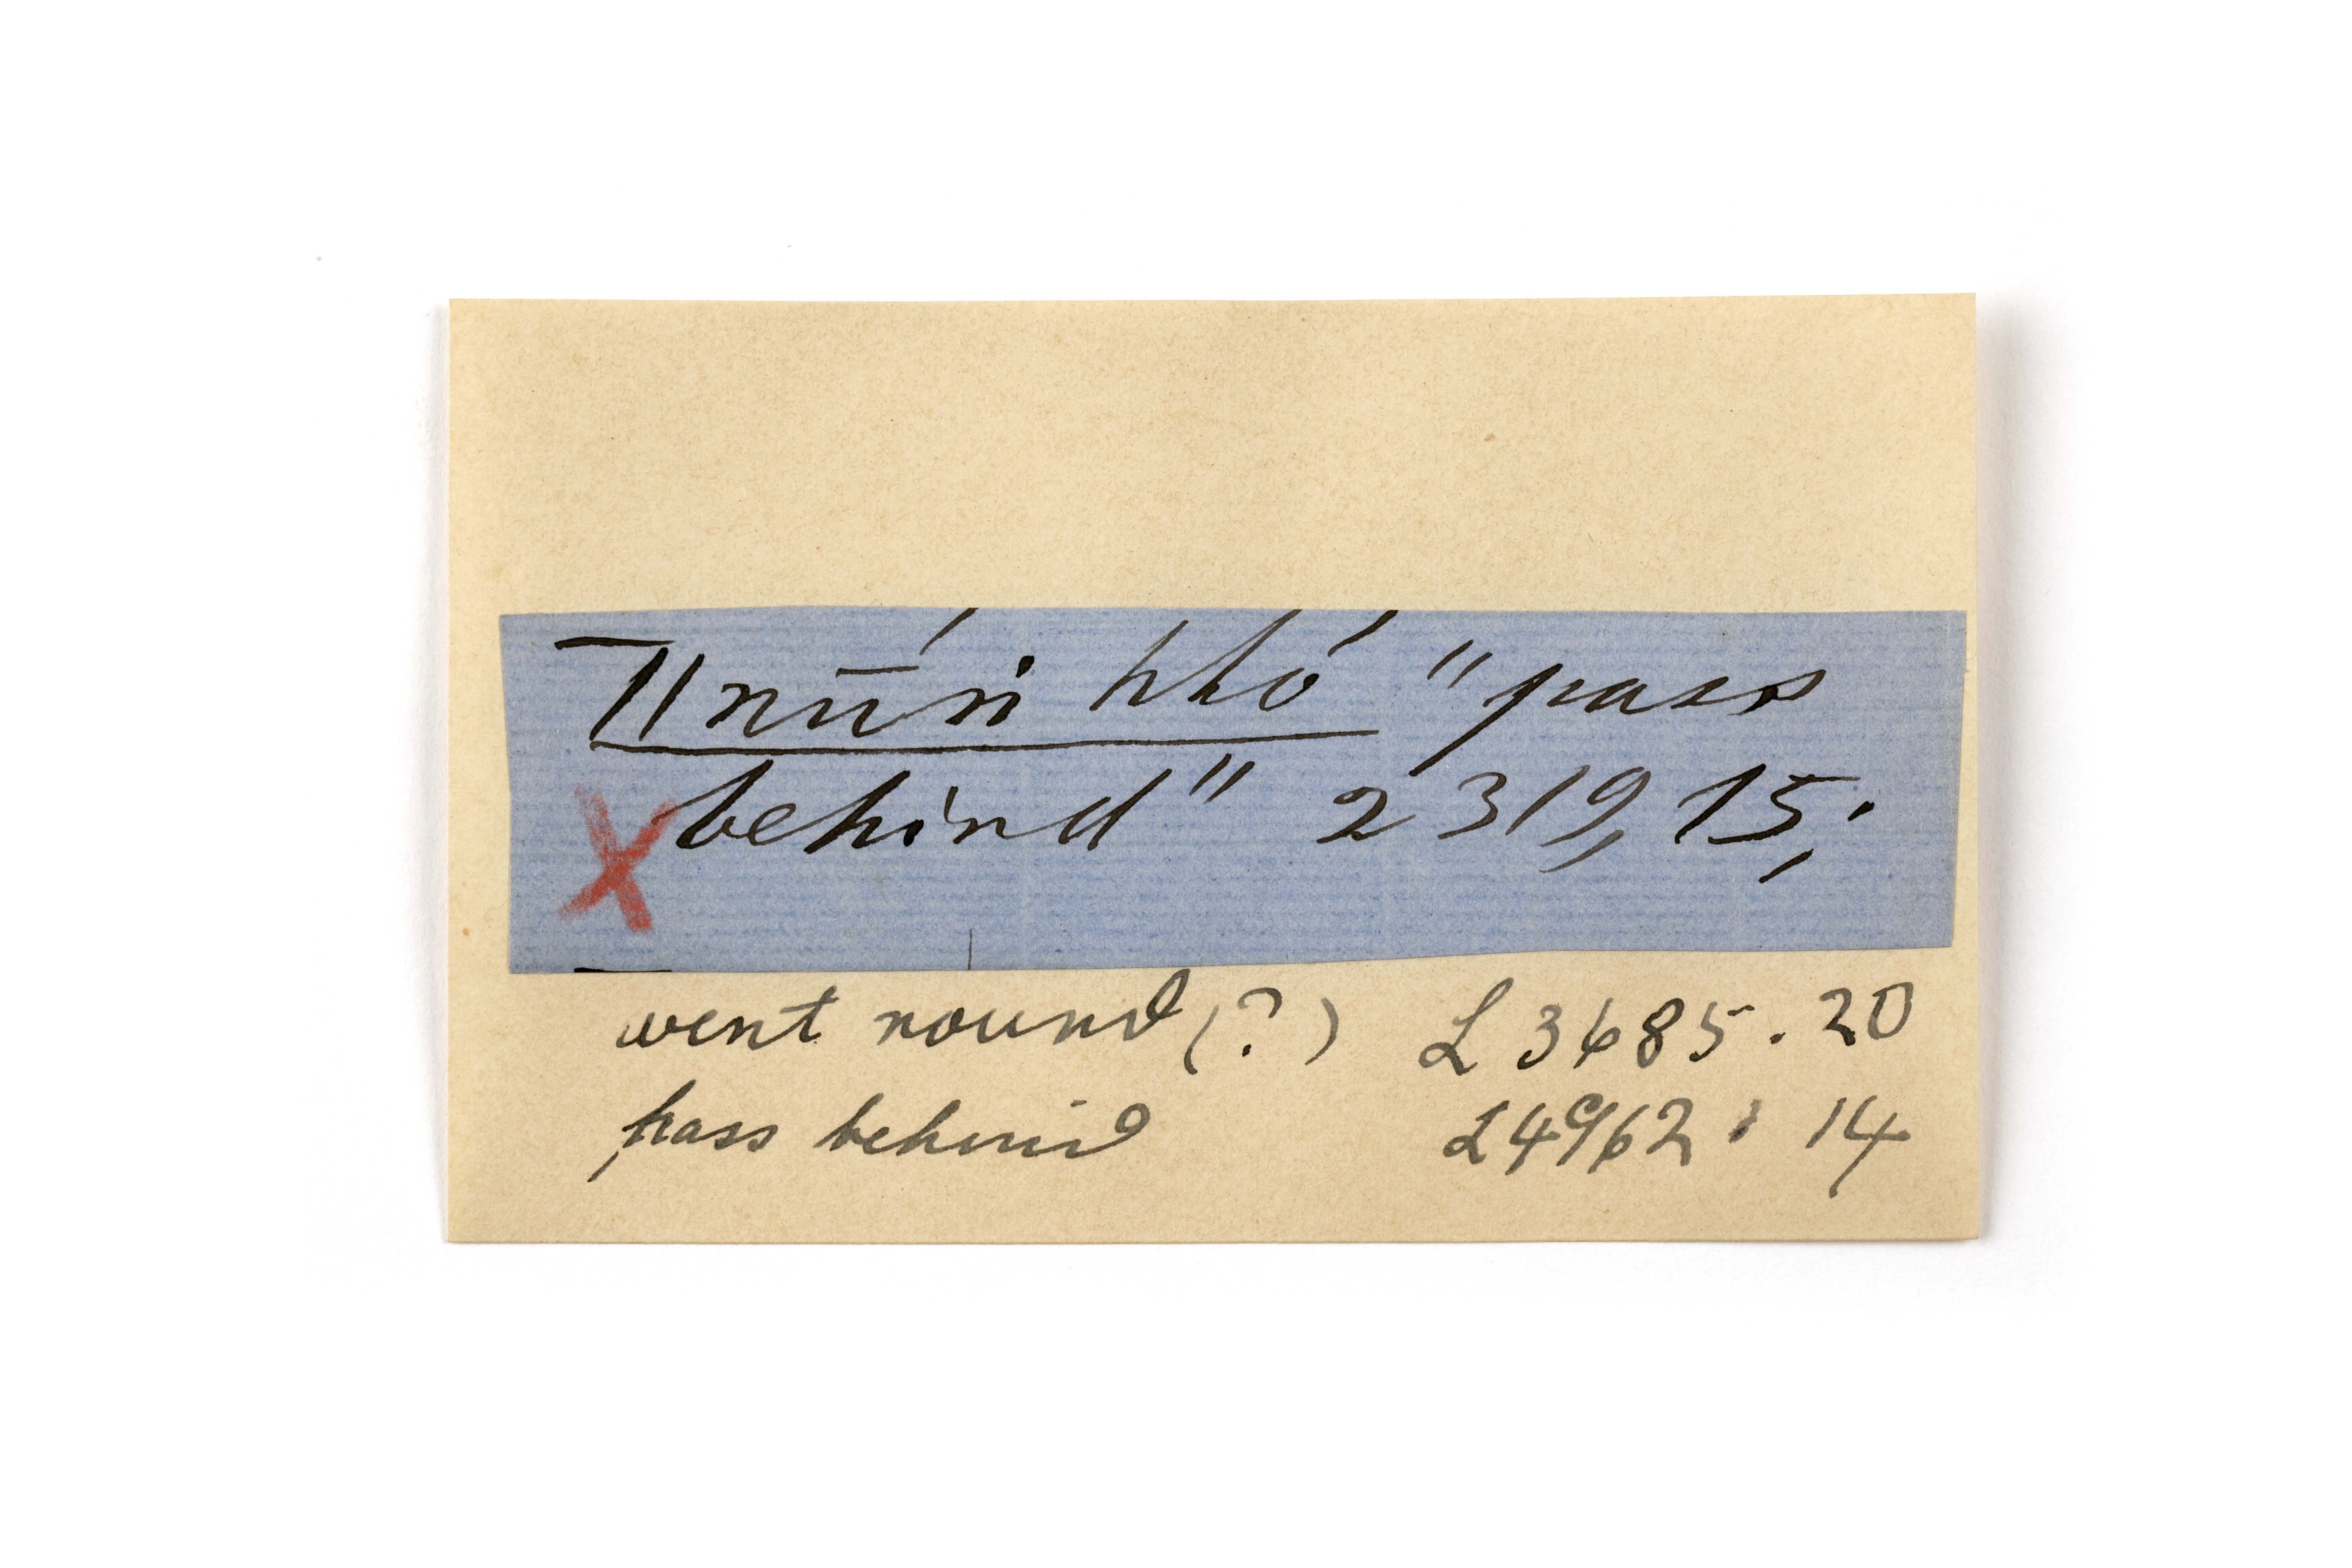 ǁnū́ṅ hhó "pass
X behind" 2319, 15,'
went round (?) L 3685 . 20
pass behind L 4962 : 14